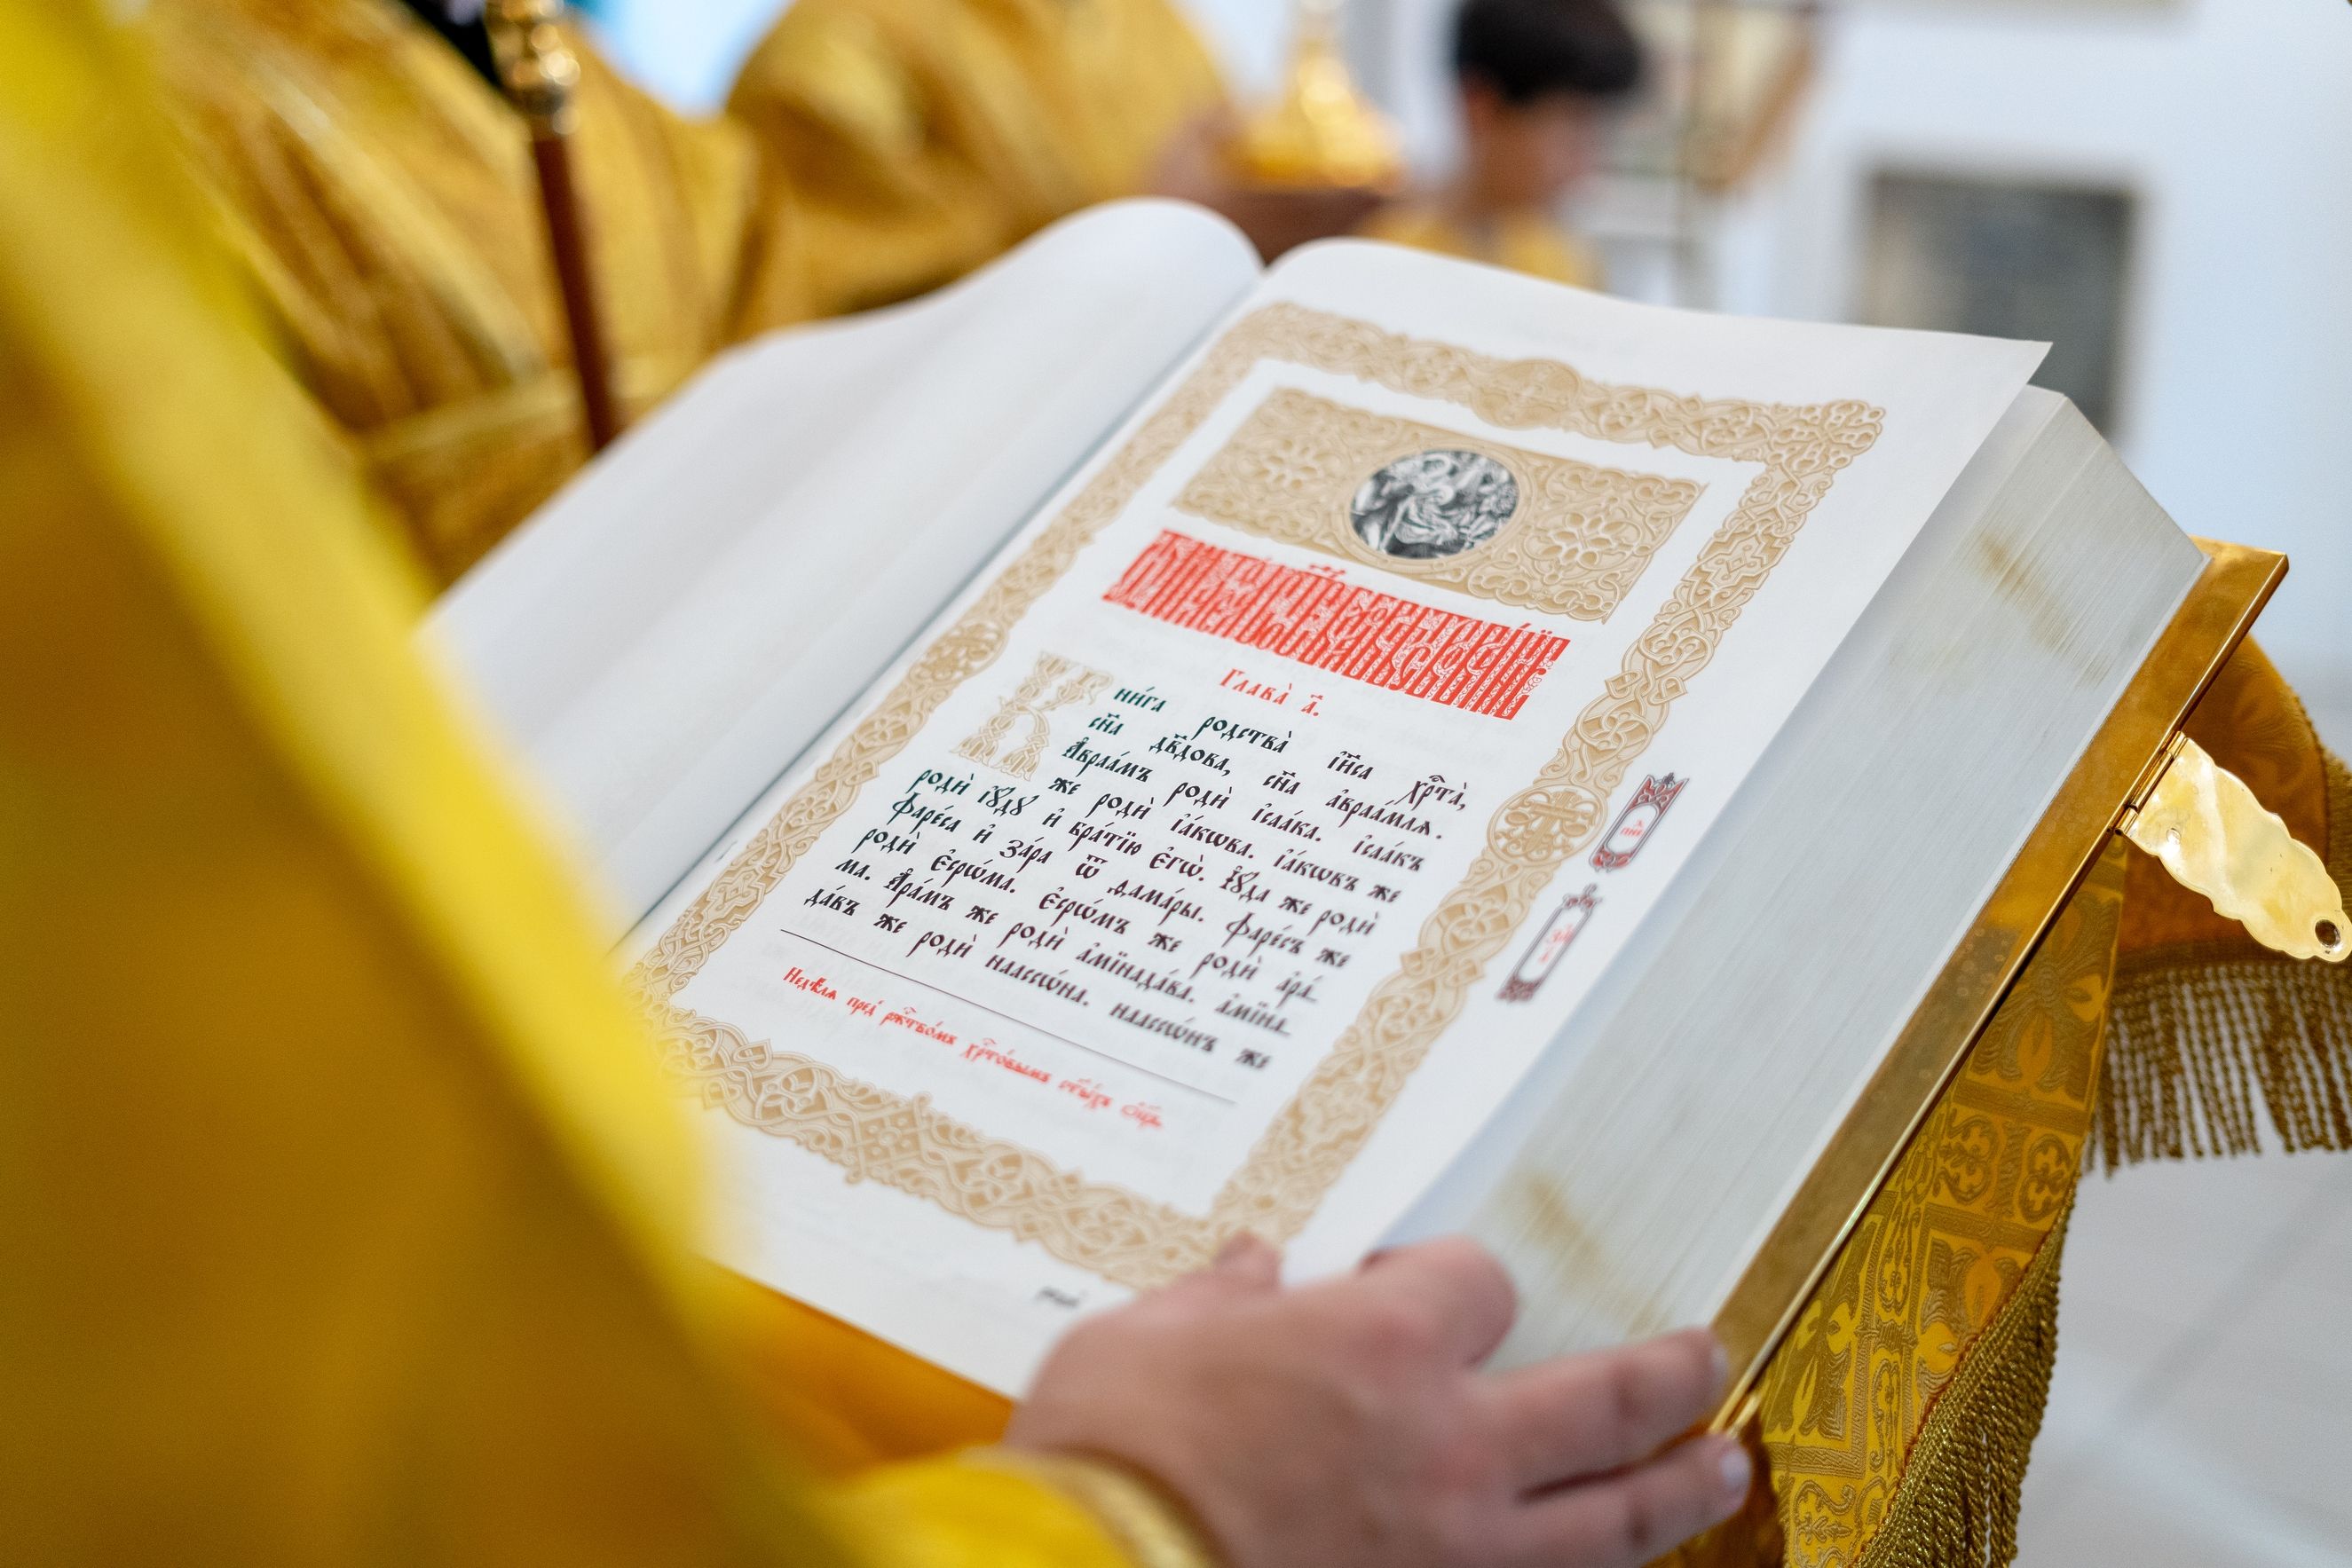 Глава̀ а҃.
Кни́га родства̀ і҆и҃са хр҃та̀,
сн҃а дв҃дова, сн҃а а҆враа́млѧ.
А҆враа́мъ родѝ і҆саа́ка. і҆саа́къ
же родѝ і҆а́кѡва. і҆а́кѡвъ же
родѝ і҆ꙋ́дꙋ и҆ бра́тїю є҆гѡ̀. і҆ꙋ́да же родѝ
Фаре́са и҆ За́ра ѿ Ѳама́ры. Фаре́съ же
родѝ Є҆срѡ́ма. Є҆срѡ́мъ же родѝ а҆ра́-
ма. А҆ра́мъ же родѝ а҆мїнада́ва. а҆мїна-
да́въ же родѝ наассѡ́на. наассѡ́нъ же
Недѣ́лѧ пред̾ рж҃тво́мъ хр҃то́вымъ ст҃ы́хъ ѻ҆ц҃ъ
родѝ